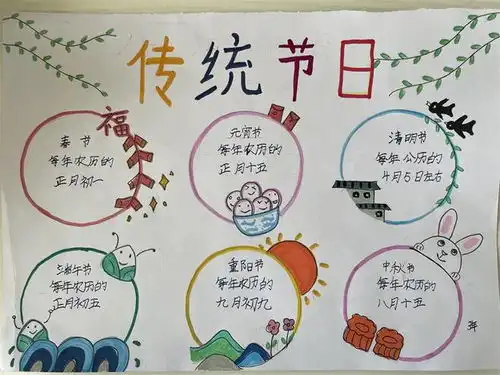 传统节日
福
春节
每年农历的
正月初一
元宵节
每年农历的
正月十五
清明节
每年公历的
4月5日左右
端午节
每年农历的
正月初五
重阳节
每年农历的
九月初九
中秋节
每年农历的
八月十五